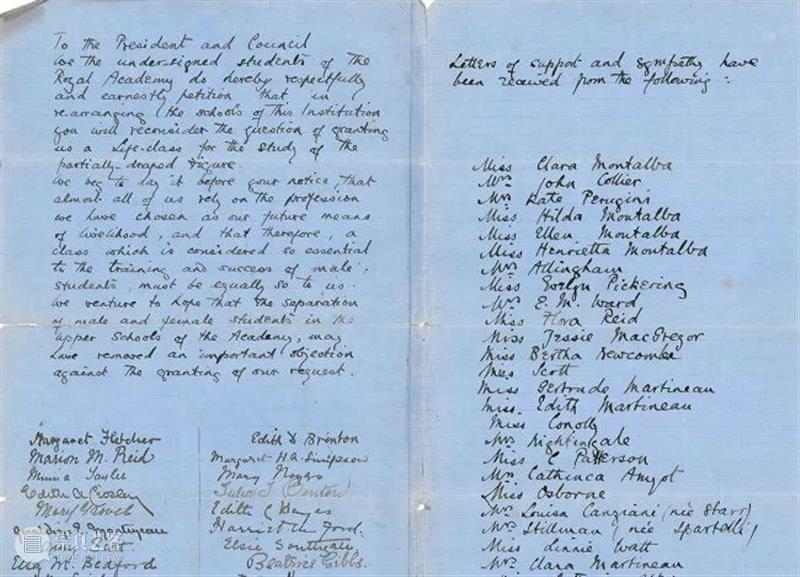 To the President and Council
we the under-signed students of the
Royal Academy do hereby respectfully
and earnestly petition that in
re-arranging the schools of this Institution
you will reconsider the question of granting
us a Life-class for the study of the
partially-draped Figure.
We beg to lay it before your notice, that
almost all of us rely on the profession
we have chosen as our future means
of livelihood, and that therefore, a
class which is considered so essential
to the training and success of male
students, must be equally so to us.
We venture to hope that the separation
of male and female students in the
Upper Schools of the Academy, may
have removed an important objection
against the granting of our request.
Margaret Fletcher
Marion M. Reid
Minna Tayler
Edith A
Mary
Martineau
Eliz. M. Bedford
Edith D Brinton
Margaret H.A. Simpson
Mary Noyes
Julia J.
Edith C
Harriet M. Ford.
Elsie Southgate
Beatrice Gibbs.
Letters of support and sympathy have
been received from the following:
Miss Clara Montalba
Mrs John Collier
Mrs Kate Perugini
Miss Hilda Montalba
Miss Ellen Montalba
Miss Henrietta Montalba
Mrs Allingham
Miss Evelyn Pickering
Mrs E. M. Ward
Miss Flora Reid
Miss Jessie MacGregor
Miss Bertha Newcombe
Miss Scott
Miss Gertrude Martineau
Miss Edith Martineau
Miss Conolly
Mrs Nightingale
Miss E Patterson
Mrs Cathinca Amyot
Miss Osborne
Mrs Louisa Canziani (née Starr)
Mrs Stillman (née Spartelli)
Miss Linnie Watt
Mrs Clara Martineau